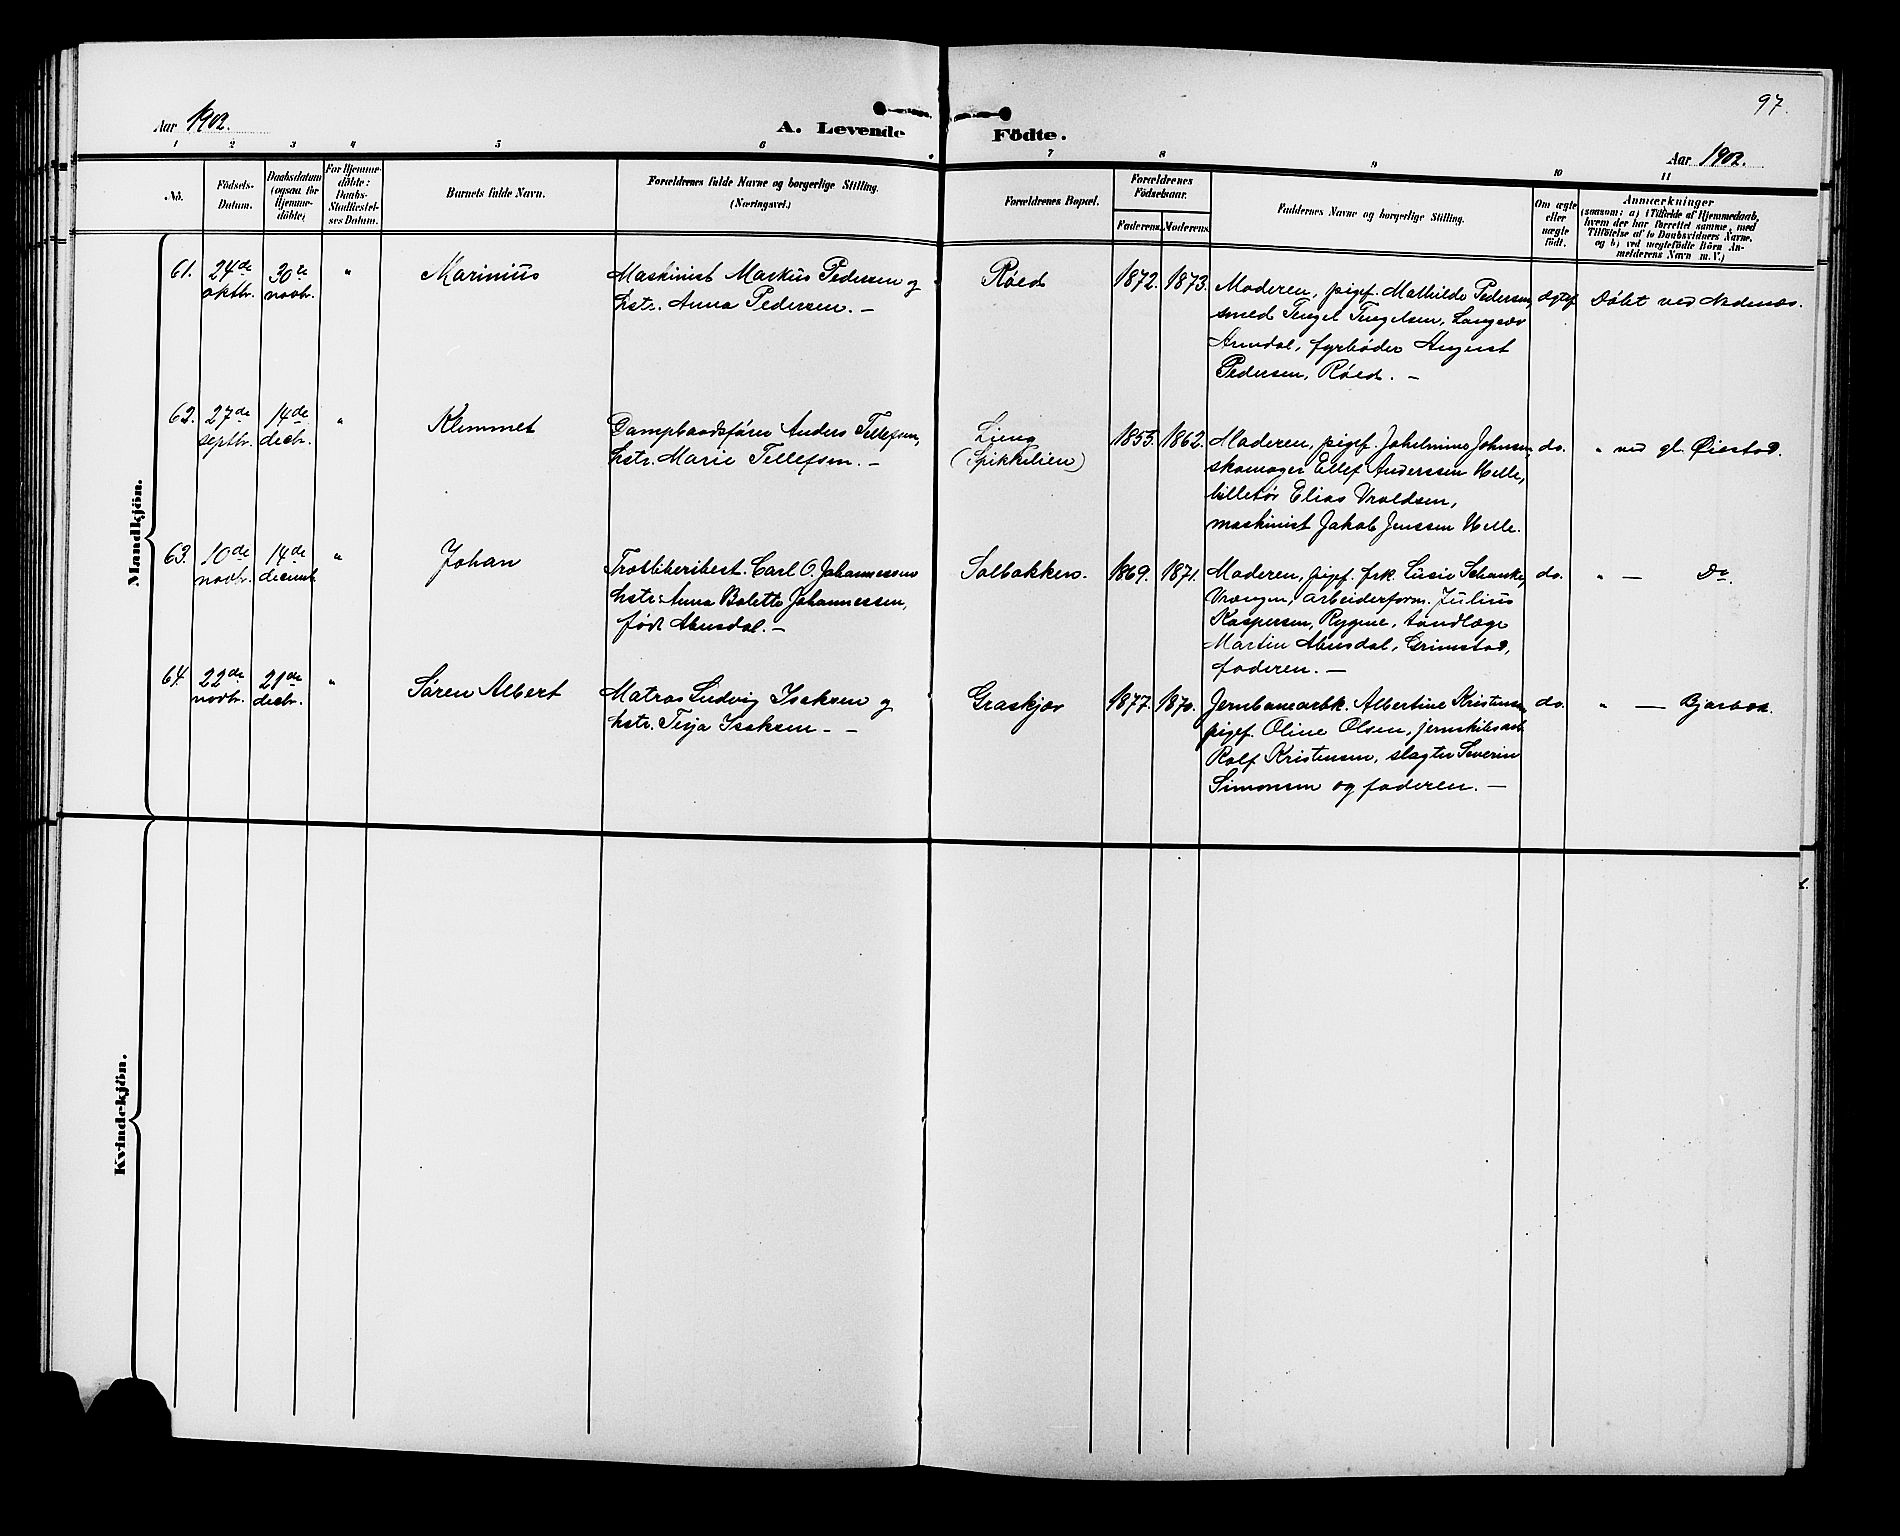 97.
Aar 1902.
A. Levende Födte.
Aar 1902.
1 2 3 4 5 6 7 8 9 10 11
No.
Födsels-
Datum.
Daabsdatum
(ogsaa for
Hjemme-
döbte)
For Hjemme-
döbte:
Daabs-
Stadfæstel-
ses Datum.
Barnets fulde Navn.
Forældrenes fulde Navne og borgerlige Stilling.
(Næringsvei.)
Forældrenes Bopæl.
Forældrenes
Födselsaar.
Faderens. Moderens.
Faddernes Navne og borgerlige Stilling.
Om ægte
eller
uægte
födt.
Anmærkninger
(saasom: a) i Tilfælde af Hjemmedaab,
hvem der har forrettet samme, med
Tilföielse af to Daabsvidners Navne,
og b) ved uægtefödte Börn An-
melderens Navn m. V.)
Mandkjön.
61. 24de oktbr. 30te novbr. " Marinius
Maskinist Markus Pedersen og
hstr. Anna Pedersen. —
Röed
1872. 1873.
Moderen, pigef. Mathilde Pedersen,
smed Tengel Tengelsen, Langsæv
Arendal, fyrböder August
Pedersen, Röed. —
ægtef.
Döbt ved Nedenæs.
62. 27de septbr. 14de decbr. " Klemmet
Dampbaadsförer Anders Tellefsen,
hstr. Marie Tellefsen. —
Liene
(Spikkilien)
1853. 1862.
Moderen, pigef. Johelmine Johnsen,
skomager Ellef Anderssen Helle,
billetör Elias Vraldsen,
maskinist Jakob Jenssen Helle.
do.
" ved gl. Øiestad.
63. 10de novbr. 14de decemb. " Johan
Træsliberibest. Carl O. Johannessen
hstr. Anna Bolette Johannessen,
født Abusdal. —
Solbakken.
1869. 1871.
Moderen, pigef. frk. Lusie Schanke,
Vrængen, arbeiderform. Julius
Kaspersen, Rygene, tandlæge
Martin Abusdal, Grimstad,
faderen. —
do.
" — Do.
64. 22de novbr. 21de decbr. " Søren Albert
Matros Ludvig Isaksen og
hstr. Terja Isaksen — —
Graskjær
1877. 1870.
Jernbanearbk. Albertine Kristensen,
pigef. Oline Olsen, jernskibsarb.
Rolf Kristensen, slagter Severin
Simonsen og faderen. —
do.
" — Bjorbæk.
Kvindekjön.